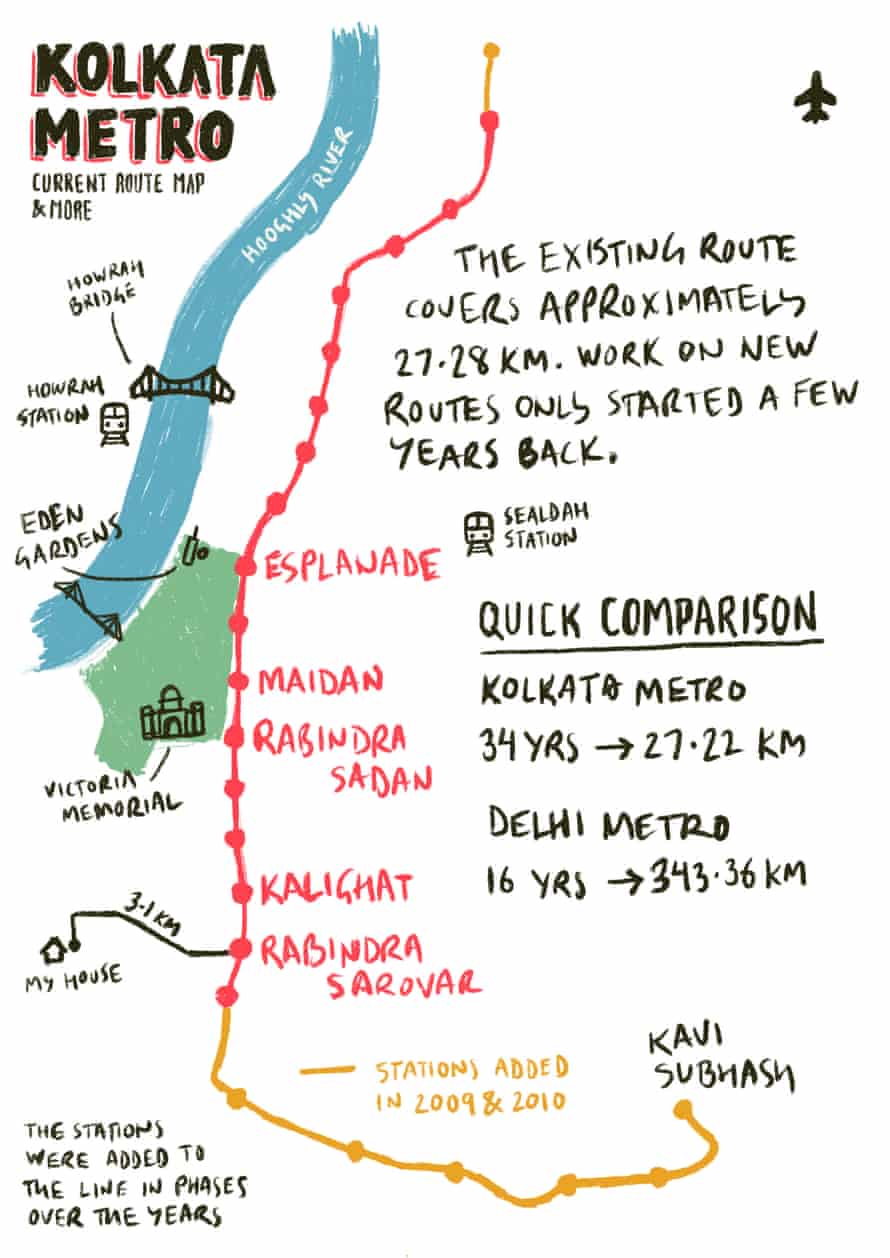 KOLKATA
METRO
CURRENT ROUTE MAP
& MORE
HOOGHLY RIVER
HOWRAH
BRIDGE
HOWRAH
STATION
THE EXISTING ROUTE
COVERS APPROXIMATELY
27.28 KM. WORK ON NEW
ROUTES ONLY STARTED A FEW
YEARS BACK.
EDEN
GARDENS
SEALDAH
STATION
ESPLANADE
QUICK COMPARISON
KOLKATA METRO
34 YRS → 27.22 KM
DELHI METRO
16 YRS → 343.36 KM
MAIDAN
RABINDRA
SADAN
VICTORIA
MEMORIAL
KALIGHAT
3.1 KM
MY HOUSE
RABINDRA
SAROVAR
STATIONS ADDED
IN 2009 & 2010
KAVI
SUBHASH
THE STATIONS
WERE ADDED TO
THE LINE IN PHASES
OVER THE YEARS